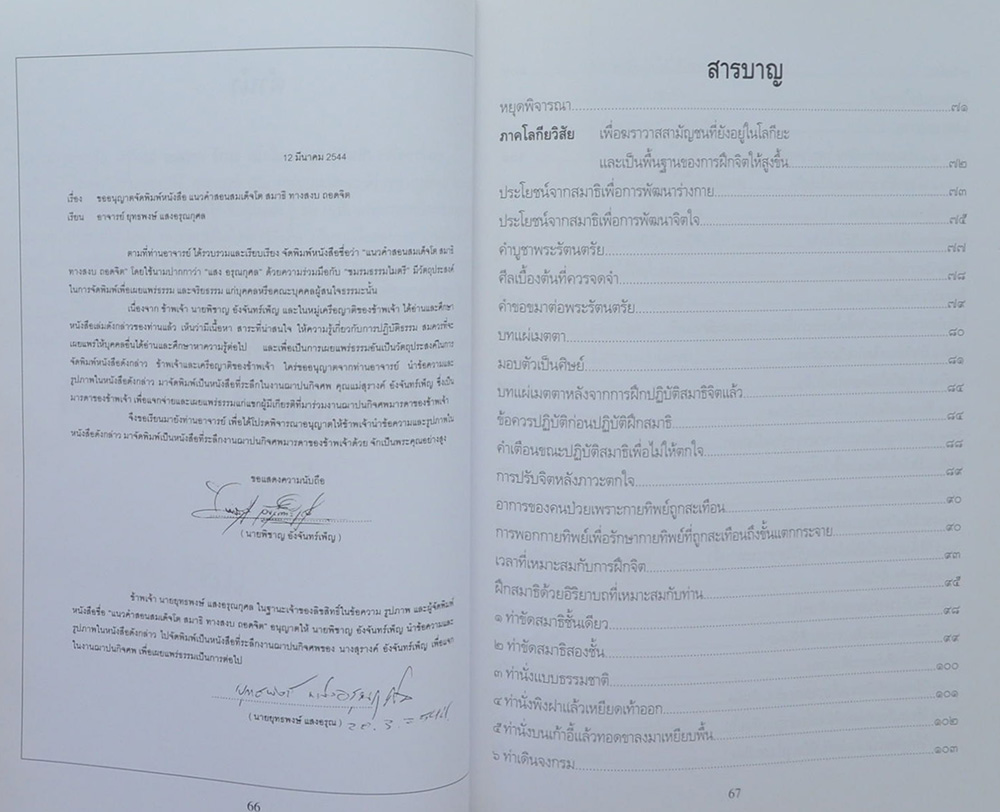 12 มีนาคม 2544
เรื่อง ขออนุญาตจัดพิมพ์หนังสือ แนวคำสอนสมเด็จโต สมาธิ ทางสงบ ถอดจิต
เรียน อาจารย์ ยุทธพงษ์ แสงอรุณกุศล
ตามที่ท่านอาจารย์ ได้รวบรวมและเรียบเรียง จัดพิมพ์หนังสือชื่อว่า "แนวคำสอนสมเด็จโต สมาธิ
ทางสงบ ถอดจิต" โดยใช้นามปากกาว่า "แสง อรุณกุศล" ด้วยความร่วมมือกับ "ชมรมธรรมไมตรี" มีวัตถุประสงค์
ในการจัดพิมพ์เพื่อเผยแพร่ธรรม และจริยธรรม แก่บุคคลหรือคณะบุคคลผู้สนใจธรรมะนั้น
เนื่องจาก ข้าพเจ้า นายพิชาญ อังจันทร์เพ็ญ และในหมู่เครือญาติของข้าพเจ้า ได้อ่านและศึกษา
หนังสือเล่มดังกล่าวของท่านแล้ว เห็นว่ามีเนื้อหา สาระที่น่าสนใจ ให้ความรู้เกี่ยวกับการปฏิบัติธรรม สมควรที่จะ
เผยแพร่ให้บุคคลอื่นได้อ่านและศึกษาหาความรู้ต่อไป และเพื่อเป็นการเผยแพร่ธรรมอันเป็นวัตถุประสงค์ในการ
จัดพิมพ์หนังสือดังกล่าว ข้าพเจ้าและเครือญาติของข้าพเจ้า ใคร่ขออนุญาตจากท่านอาจารย์ นำข้อความและ
รูปภาพในหนังสือดังกล่าว มาจัดพิมพ์เป็นหนังสือที่ระลึกในงานฌาปนกิจศพ คุณแม่สุรางค์ อังจันทร์เพ็ญ ซึ่งเป็น
มารดาของข้าพเจ้า เพื่อแจกจ่ายและเผยแพร่ธรรมแก่แขกผู้มีเกียรติที่มาร่วมงานฌาปนกิจศพมารดาของข้าพเจ้า
จึงขอเรียนมายังท่านอาจารย์ เพื่อได้โปรดพิจารณาอนุญาตให้ข้าพเจ้านำข้อความและรูปภาพใน
หนังสือดังกล่าว มาจัดพิมพ์เป็นหนังสือที่ระลึกงานฌาปนกิจศพมารดาของข้าพเจ้าด้วย จักเป็นพระคุณอย่างสูง
ขอแสดงความนับถือ
( นายพิชาญ อังจันทร์เพ็ญ )
ข้าพเจ้า นายยุทธพงษ์ แสงอรุณกุศล ในฐานะเจ้าของลิขสิทธิ์ในข้อความ รูปภาพ และผู้จัดพิมพ์
หนังสือชื่อ "แนวคำสอนสมเด็จโต สมาธิ ทางสงบ ถอดจิต" อนุญาตให้ นายพิชาญ อังจันทร์เพ็ญ นำข้อความและ
รูปภาพในหนังสือดังกล่าว ไปจัดพิมพ์เป็นหนังสือที่ระลึกงานฌาปนกิจศพของ นางสุรางค์ อังจันทร์เพ็ญ เพื่อแจก
ในงานฌาปนกิจศพ เพื่อเผยแพร่ธรรมเป็นการต่อไป
ยุทธพงษ์ แสงอรุณกุศล
(นายยุทธพงษ์ แสงอรุณ)
66
สารบาญ
หยุดพิจารณา ๗๑
ภาคโลกียวิสัย เพื่อฆราวาสสามัญชนที่ยังอยู่ในโลกียะ
และเป็นพื้นฐานของการฝึกจิตให้สูงขึ้น ๗๒
ประโยชน์จากสมาธิเพื่อการพัฒนาร่างกาย ๗๓
ประโยชน์จากสมาธิเพื่อการพัฒนาจิตใจ ๗๕
คำบูชาพระรัตนตรัย ๗๗
ศีลเบื้องต้นที่ควรจดจำ ๗๘
คำขอขมาต่อพระรัตนตรัย ๗๙
บทแผ่เมตตา ๘๐
มอบตัวเป็นศิษย์ ๘๑
บทแผ่เมตตาหลังจากการฝึกปฏิบัติสมาธิจิตแล้ว ๘๔
ข้อควรปฏิบัติก่อนปฏิบัติฝึกสมาธิ ๘๔
คำเตือนขณะปฏิบัติสมาธิเพื่อไม่ให้ตกใจ ๘๘
การปรับจิตหลังภาวะตกใจ ๘๙
อาการของคนป่วยเพราะกายทิพย์ถูกสะเทือน ๙๐
การพอกกายทิพย์เพื่อรักษากายทิพย์ที่ถูกสะเทือนถึงขั้นแตกกระจาย ๙๐
เวลาที่เหมาะสมกับการฝึกจิต ๙๓
ฝึกสมาธิด้วยอิริยาบถที่เหมาะสมกับท่าน ๙๕
๑ ท่าขัดสมาธิชั้นเดียว ๙๘
๒ ท่าขัดสมาธิสองชั้น ๙๙
๓ ท่านั่งแบบธรรมชาติ ๑๐๐
๔ ท่านั่งพิงฝาแล้วเหยียดเท้าออก ๑๐๑
๕ ท่านั่งบนเก้าอี้แล้วทอดขาลงมาเหยียบพื้น ๑๐๒
๖ ท่าเดินจงกรม ๑๐๓
67